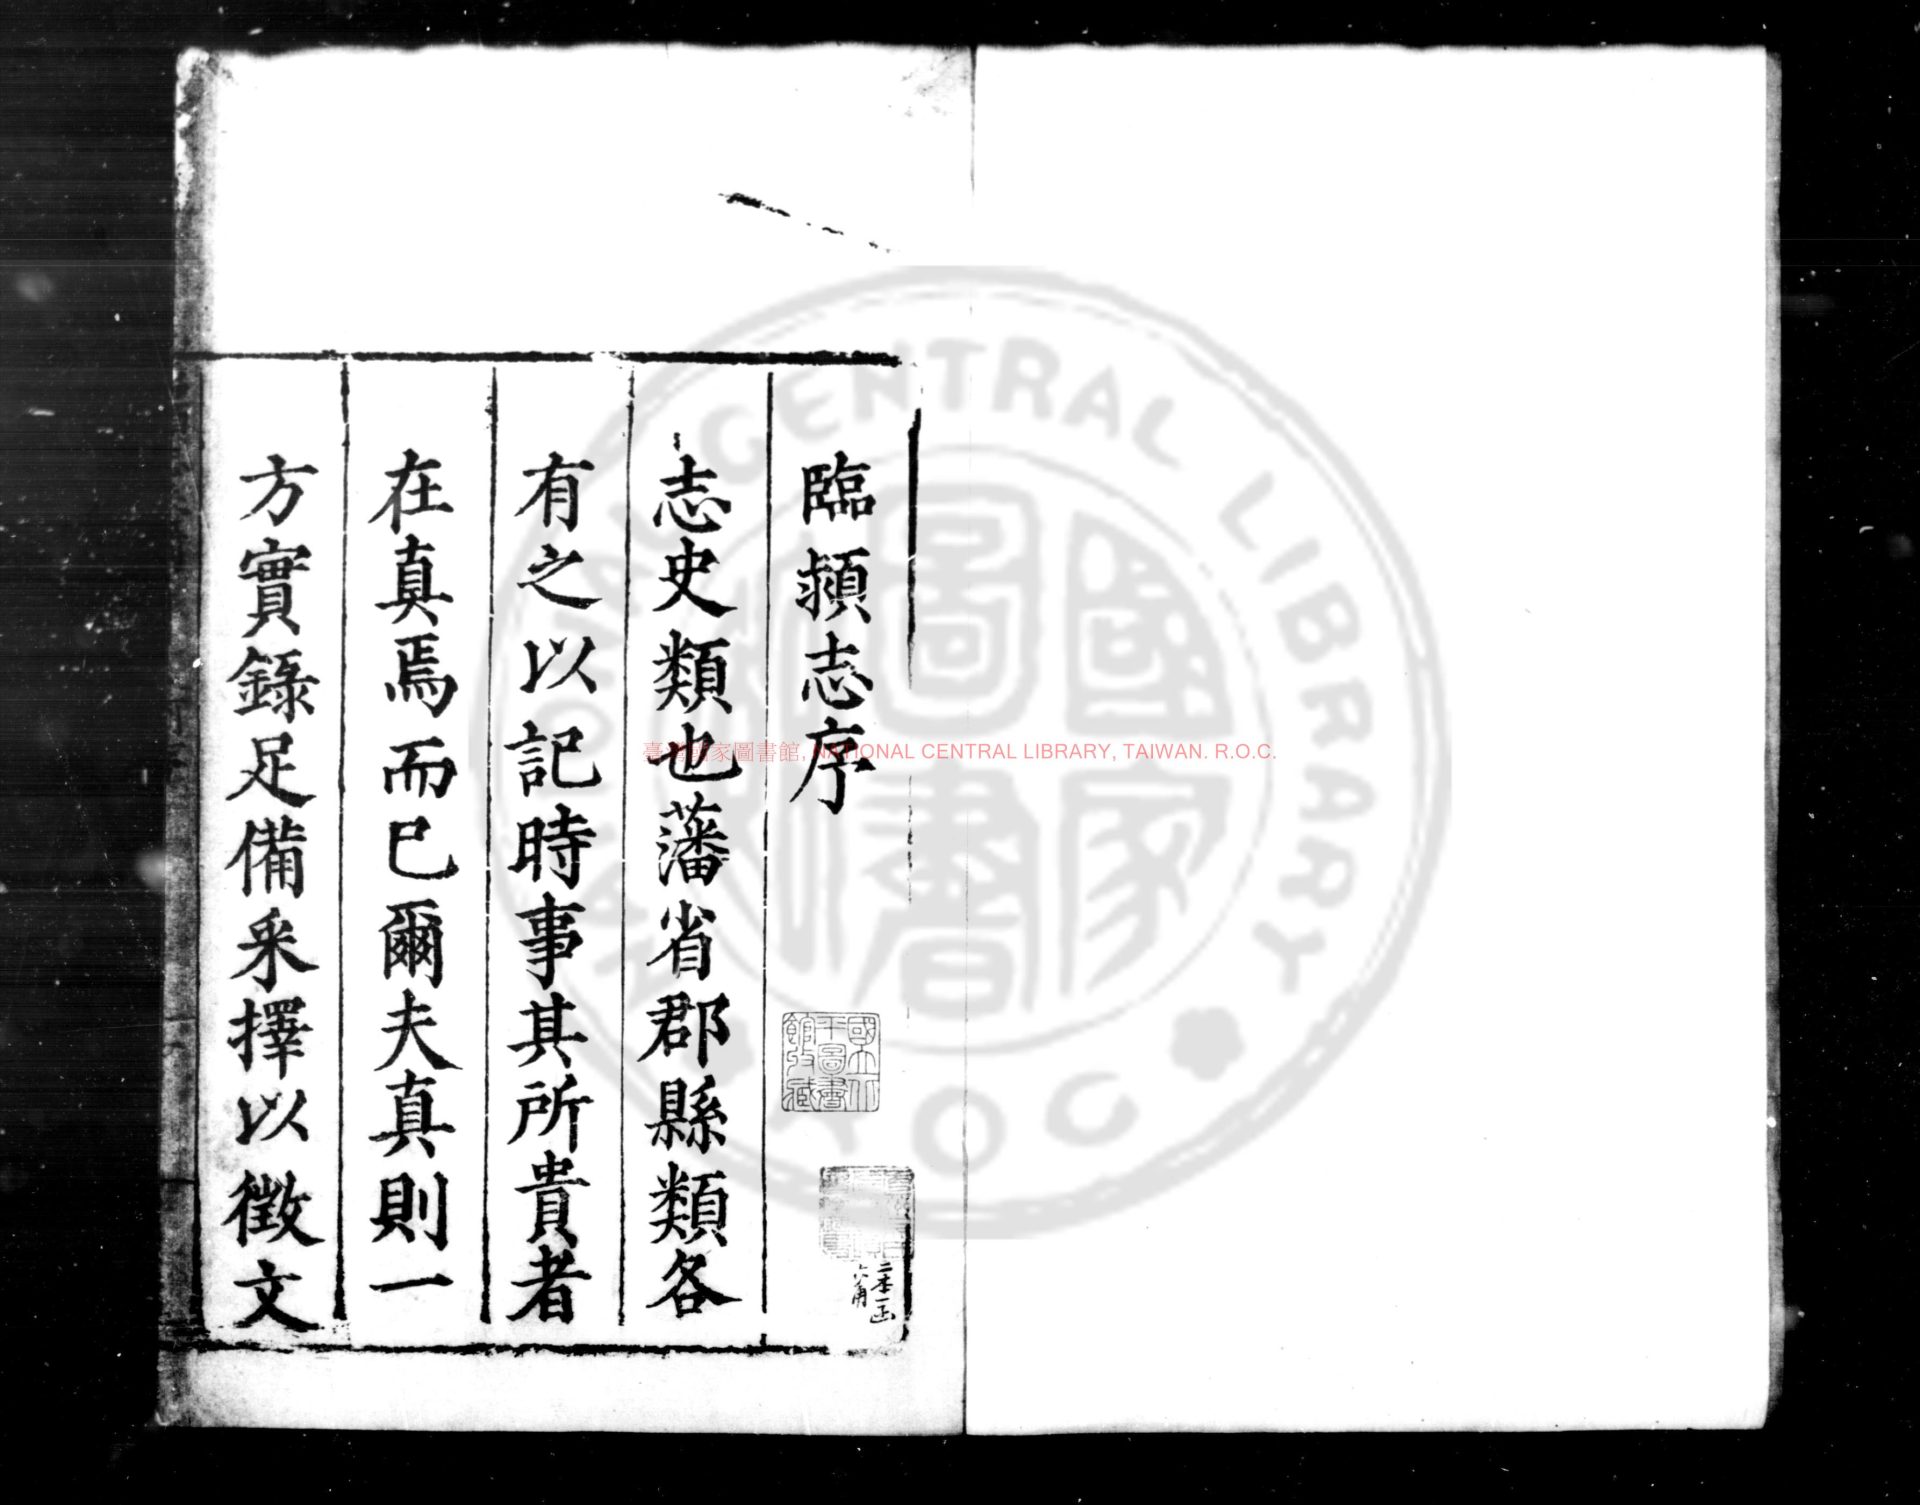 臨潁志序
志史類也藩省郡縣類各
有之以記時事其所貴者
在真焉而已爾夫真則一
方實錄足備采擇以徵文
國立北
平圖書
館收藏
二本一函
臺灣國家圖書館, NATIONAL CENTRAL LIBRARY, TAIWAN. R.O.C.
NATIONAL CENTRAL LIBRARY
R.O.C.
國家
圖書